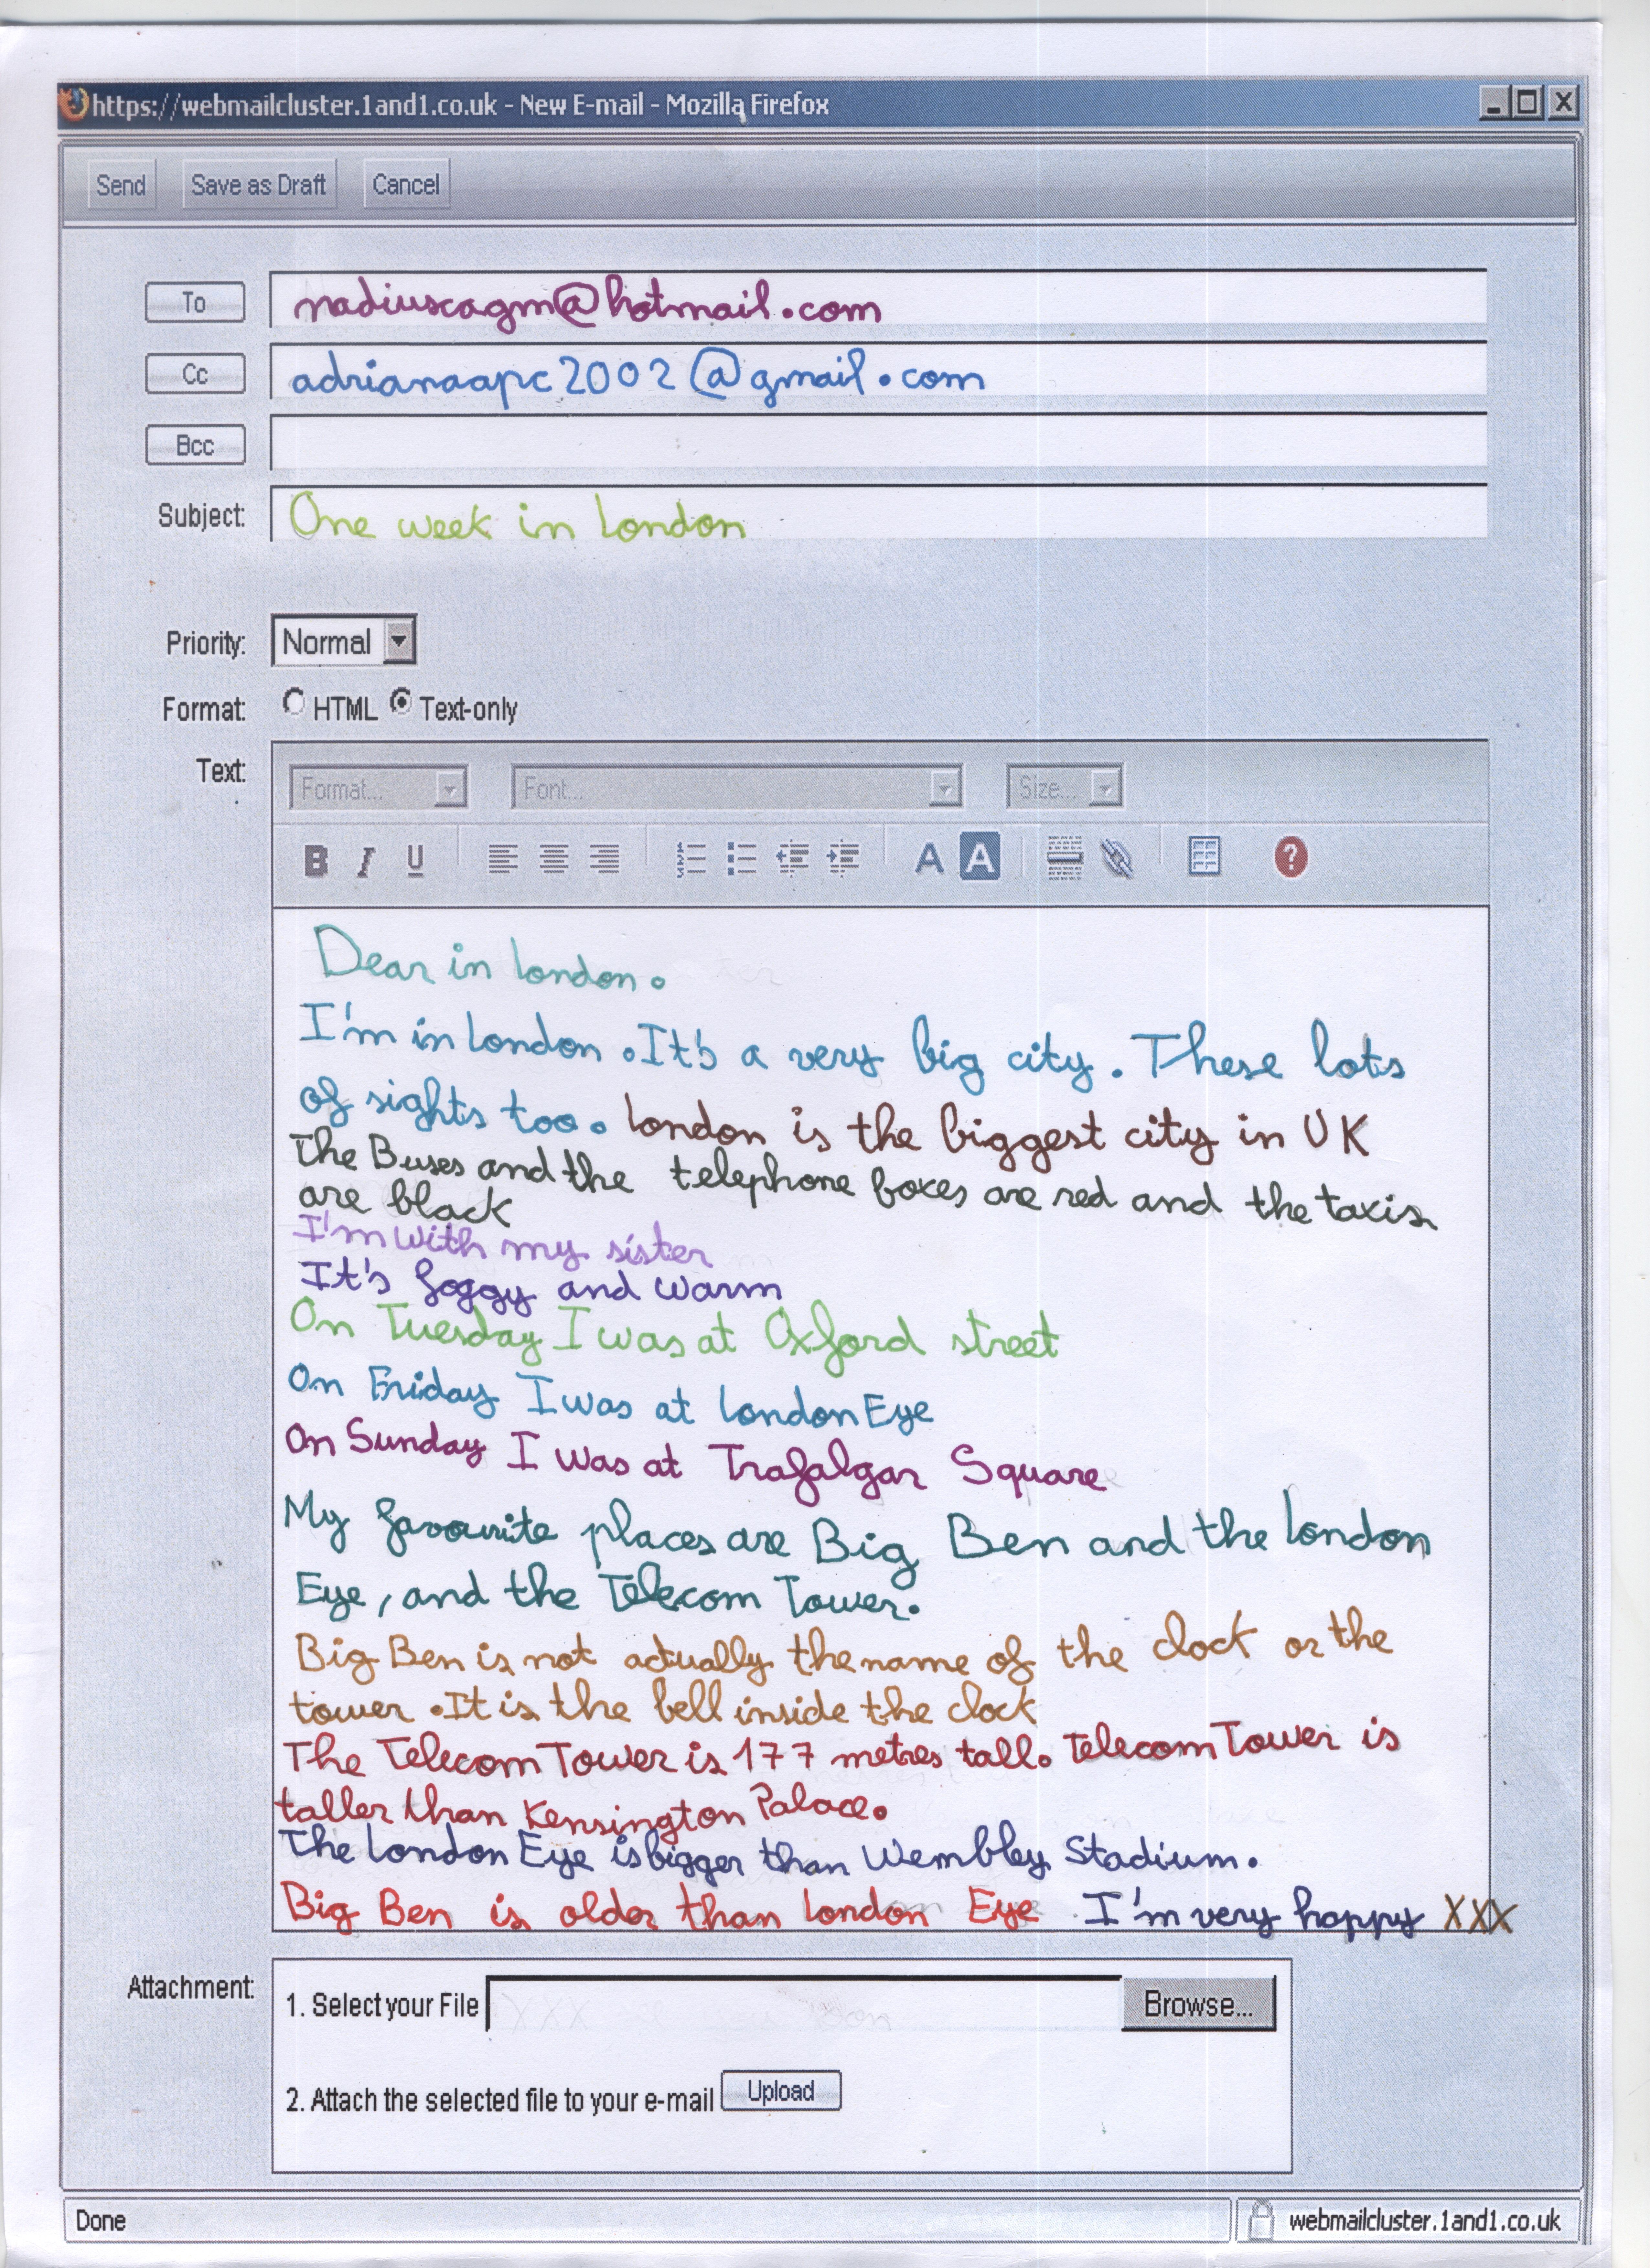 https://webmailcluster.1and1.co.uk - New E-mail - Mozilla Firefox
Send Save as Draft Cancel
To nadiuscagm@hotmail.com
Cc adrianaapc2002@gmail.com
Bcc
Subject: One week in london
Priority: Normal
Format: HTML Text-only
Text: Format... Font... Size...
B I U A A ?
Dear in london.
I'm in london. It's a very big city. These lots
of sights too. london is the biggest city in UK
The Buses and the telephone boxes are red and the taxis
are black
I'm with my sister
It's foggy and warm
On Tuesday I was at Oxford street
On Friday I was at london Eye
On Sunday I was at Trafalgar Square
My favourite places are Big Ben and the london
Eye, and the Telecom Tower.
Big Ben is not actually the name of the clock or the
tower. It is the bell inside the clock
The Telecom Tower is 177 metres tall. Telecom Tower is
taller than Kensington Palace.
The london Eye is bigger than Wembley Stadium.
Big Ben is older than london Eye. I'm very happy XXX
Attachment: 1. Select your File Browse...
2. Attach the selected file to your e-mail Upload
Done webmailcluster.1and1.co.uk